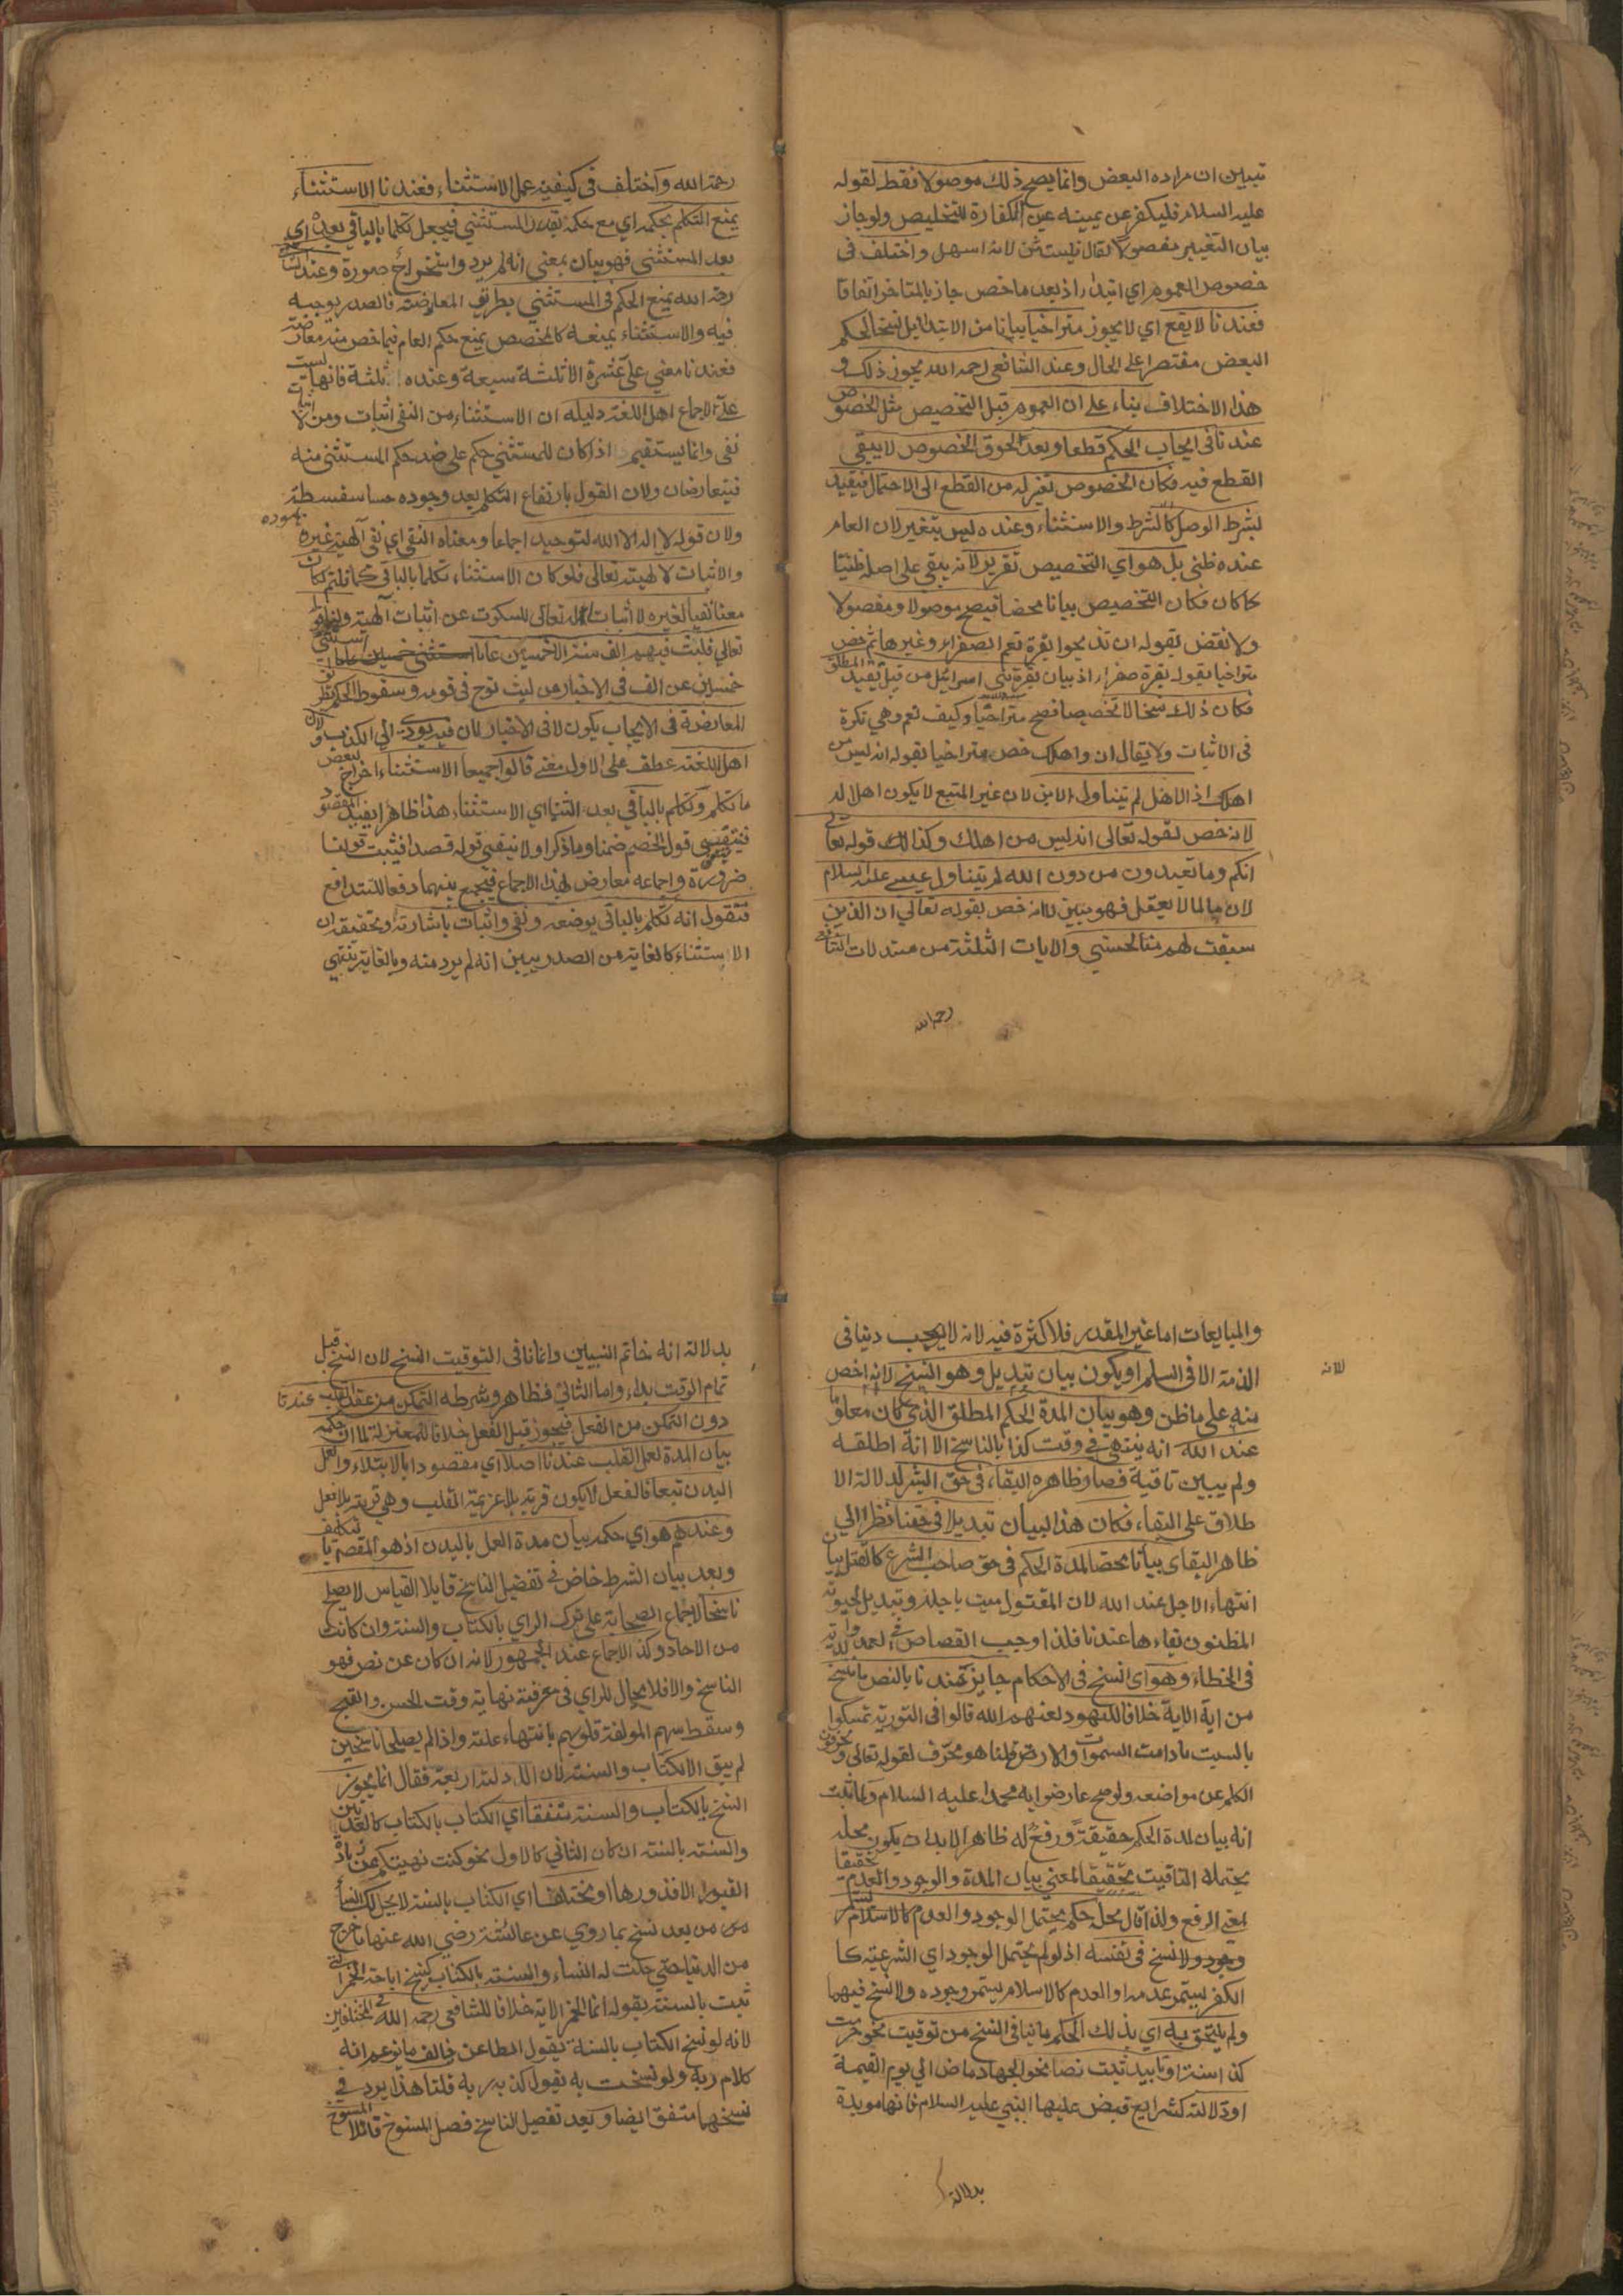 تبيين ان مراده البعض وانما يصح ذلك موصولا فقط لقوله
عليه السلام فليكفر عن يمينه عين الكفارة للتخليص ولو جاز
بيان التغيير مفصولا لقال فليستثن لانه اسهل واختلف فى
خصوص العموم اي ابتداء اذ بعد ما خص جاز بالمتاخر اتفاقا
فعندنا لا يقع اي لا يجوز متراخيا بيانا من الابتداء بل نسخا لحكم
البعض مقتصرا على الحال وعند الشافعى رحمه الله يجوز ذلك و
هذا الاختلاف بناء على ان العموم قبل التخصيص مثل الخصوص
عندنا فى ايجاب الحكم قطعا وبعد لحوق الخصوص لا يبقى
القطع فيه فكان الخصوص تغير له من القطع الى الاحتمال فيقيد
بشرط الوصل كالشرط والاستثناء وعنده ليس بتغير لان العام
عنده ظنى بل هو اي التخصيص تقرير لانه يبقى على اصله ظنيا
كما كان فكان التخصيص بيانا محضا فيصح موصولا ومفصولا
ولا نقض بقوله ان تذبحوا بقرة تعم الصفراء وغيرها ثم خص
متراخيا بقوله بقرة صفراء اذ بيان بقرة بنى اسرائيل من قبيل تقييد المطلق
فكان ذلك نسخا لا تخصيصا فصح متراخيا وكيف تعم وهي نكرة
فى الاثبات ولا يقال ان واهلك خص متراخيا بقوله انه ليس من
اهلك اذ الاهل لم يتناول الابن لان غير المتبع لا يكون اهلا له
لانه خص لقوله تعالى انه ليس من اهلك وكذلك قوله تعالى
انكم وما تعبدون من دون الله لم يتناول عيسى عليه السلام
لان ما لما لا يعقل فهو بيين لا انه خص بقوله تعالي ان الذين
سبقت لهم منا الحسني والايات الثلثة من مستدلات الشافعى
رحمه الله
رحمة الله واختلف فى كيفية عمل الاستثناء فعندنا الاستثناء
يمنع التكلم بحكمه اي مع حكمه بقدر المستثني فيجعل تكلما بالباقي بعده اي
بعد المستثنى فهو بيان بمعنى انه لم يرد واستخراج صورة وعند الشافعى
رحمه الله يمنع الحكم فى المستثني بطريق المعارضة فالصدر يوجبه
فيه والاستثناء يمنعه كالمخصص يمنع حكم العام فيما خص منه معارضة
فعندنا معني على عشرة الا ثلثة سبعة وعنده الا ثلثة فانها ليست
علي لاجماع اهل اللغة دليله ان الاستثناء من النفى اثبات ومن الاثبات
نفى وانما يستقيم اذا كان للمستثني حكم على ضد حكم المستثنى منه
فيتعارضان ولان القول بارتفاع التكلم بعد وجوده حسا سفسطة
ولان قوله لا اله الا الله لتوحيد اجماعا ومعناه النفى اي نفى الهية غيره
والاثبات لا لهيته تعالى فلو كان الاستثناء تكلما بالباقى كما قلتم لكان
معنا نفيا لغيره لا اثبات له تعالى للسكوت عن اثبات الهيته ولنا قوله
تعالي فلبث فيهم الف سنة الا خمسين عاما استثنى
خمسين عن الف فى الاخبار من لبث نوح فى قومه وسقوط الحكم بطريق
المعارضة فى الايجاب يكون لا فى الاخبار لان فيه يودى الي الكذب ولان
اهل اللغة عطف على الاول معنے قالوا جميعا الاستثناء اخراج لبعض
ما تكلم وتكلم بالباقي بعد الثنيا اي الاستثناء هذا ظاهرا يفيد المقصود
فينتفى قول الخصم ضمنا وما ذكر اولا ينفى قوله قصدا فيثبت قولنا
ضرورة واجماعه معارض لهذا الاجماع فيجمع بينهما دفعا للتدافع
فنقول انه تكلم بالباقى بوضعه ونفى واثبات باشارته وتحقيقه ان
الاستثناء كالغاية من الصدر يبين انه لم يرد منه وبالغاية ينتهي
والمبايعات اما غير المقدر فلا كثرة فيه لانه لا يوجب دينا فى
الذمة الا فى السلم او يكون بيان تبديل وهو النسخ لانه اخص
لانه
منه على ما ظن وهو بيان المدة الحكم المطلق الذي كان معلوما
عند الله انه ينتهى فى وقت كذا بالناسخ الا انه اطلقه
ولم يبين تاقيته فصار ظاهره البقاء فى حق البشر لدلالة الا
طلاق على البقاء فكان هذا البيان تبديلا فى حقنا نظرا الي
ظاهر البقاى بيانا محضا لمدة الحكم فى حق صاحب الشرع كالقتل بيان
انتهاء الاجل عند الله لان المقتول ميت باجله وتبديل لحيوته
المظنون بقاءها عندنا فلذا وجب القصاص فى العمد والدية
فى الخطاء وهو اى النسخ فى الاحكام جايز عندنا بالنص ما ننسخ
من اية الاية خلافا لليهود لعنهم الله قالوا فى التورية تمسكوا
بالسبت ما دامت السموات والارض قلنا هو محرف لقوله تعالى يحرفون
الكلم عن مواضعه ولو صح عارضوا به محمدا عليه السلام ولما ثبت
انه بيان لمدة الحكم حقيقة ورفع له ظاهرا لا بد ان يكون محله
يحتمل التاقيت تحقيقا لمعني بيان المدة والوجود والعدم تحقيقا
لمعنى الرفع ولذا قال محله حكم يحتمل الوجود والعدم كالاسلام
وجوده ولا نسخ فى نفسه اذ لو لم يحتمل الوجود اي الشرعية كا
الكفر يستمر عدمه او العدم كالاسلام يستمر وجوده ولا نسخ فيهما
ولم يلتحق به اي بذلك الحكم ما ينافى النسخ من توقيت نحو حرمت
كذا سنة او تابيد ثبت نصا نحو الجهاد ماض الي يوم القيمة
او دلالة كشرايع قبض عليها النبي عليه السلام فانها موبدة
بدلالة
بدلالة انه خاتم النبيين وانما نافى التوقيت النسخ لان النسخ قبل
تمام الوقت بداء واما الثانى فظاهر وشرطه التمكن من عقد القلب عندنا
دون التمكن من الفعل فيجوز قبل الفعل خلافا للمعتزلة لما ان حكمه
بيان المدة لعمل القلب عندنا اصلا اي مقصودا بالابتلاء ولعمل
البدن تبعا فالفعل لا يكون قربة بلا عزيمة القلب وهى قربة بلا فعل
وعندهم هو اي حكمه بيان مدة العمل بالبدن اذ هو المقصود بالتكليف
وبعد بيان الشرط خاض فى تفضيل الناسخ قايلا القياس لا يصلح
ناسخا لاجماع الصحابة على ترك الراي بالكتاب والسنة وان كانت
من الاحاد وكذا الاجماع عند الجمهور لانه ان كان عن نص فهو
الناسخ والا فلا مجال للراي فى معرفة نهاية وقت الحسن والقبح
وسقط سهم المولفة قلوبهم بانتهاء علته واذا لم يصلحا ناسخين
لم يبق الا الكتاب والسنة لان الادلة اربعة فقال انما يجوز
النسخ بالكتاب والسنة متفقا اي الكتاب بالكتاب كالعدتين
والسنة بالسنة ان كان الثاني كالاول نحو كنت نهيتكم عن زيارة
القبور الا فزوروها او مختلفا اي الكتاب بالسنة لا يحل لك النساء
من بعد نسخ بما روي عن عائشة رضي الله عنها ما خرج
من الدنيا حتي حلت له النساء والسنة بالكتاب كنسخ اباحة الخمر التى
ثبت بالسنة بقوله انما الخمر الاية خلافا للشافعى رحمه الله فى المختلفين
لانه لو نسخ الكتاب بالسنة يقول الطاعن خالف ما يزعم انه
كلام ربه ولو نسخت به يقول كذبه ربه قلنا هذا يرد في
نسخهما متفق ايضا وبعد تفصيل الناسخ فصل المنسوخ قائلا المنسوخ